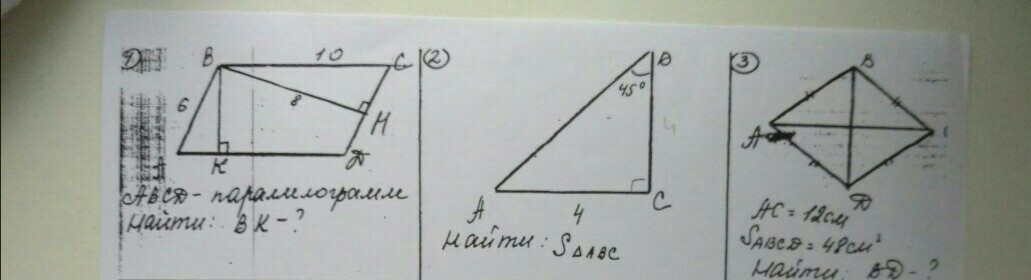 1)
B 10 C
6
8
H
A K D
ABCD - паралилограмм
Найти: BK - ?
(2)
B
45°
4
A 4 C
Найти: S△ABC
(3)
B
A C
D
AC = 12см
SABCD = 48см²
Найти: BD - ?